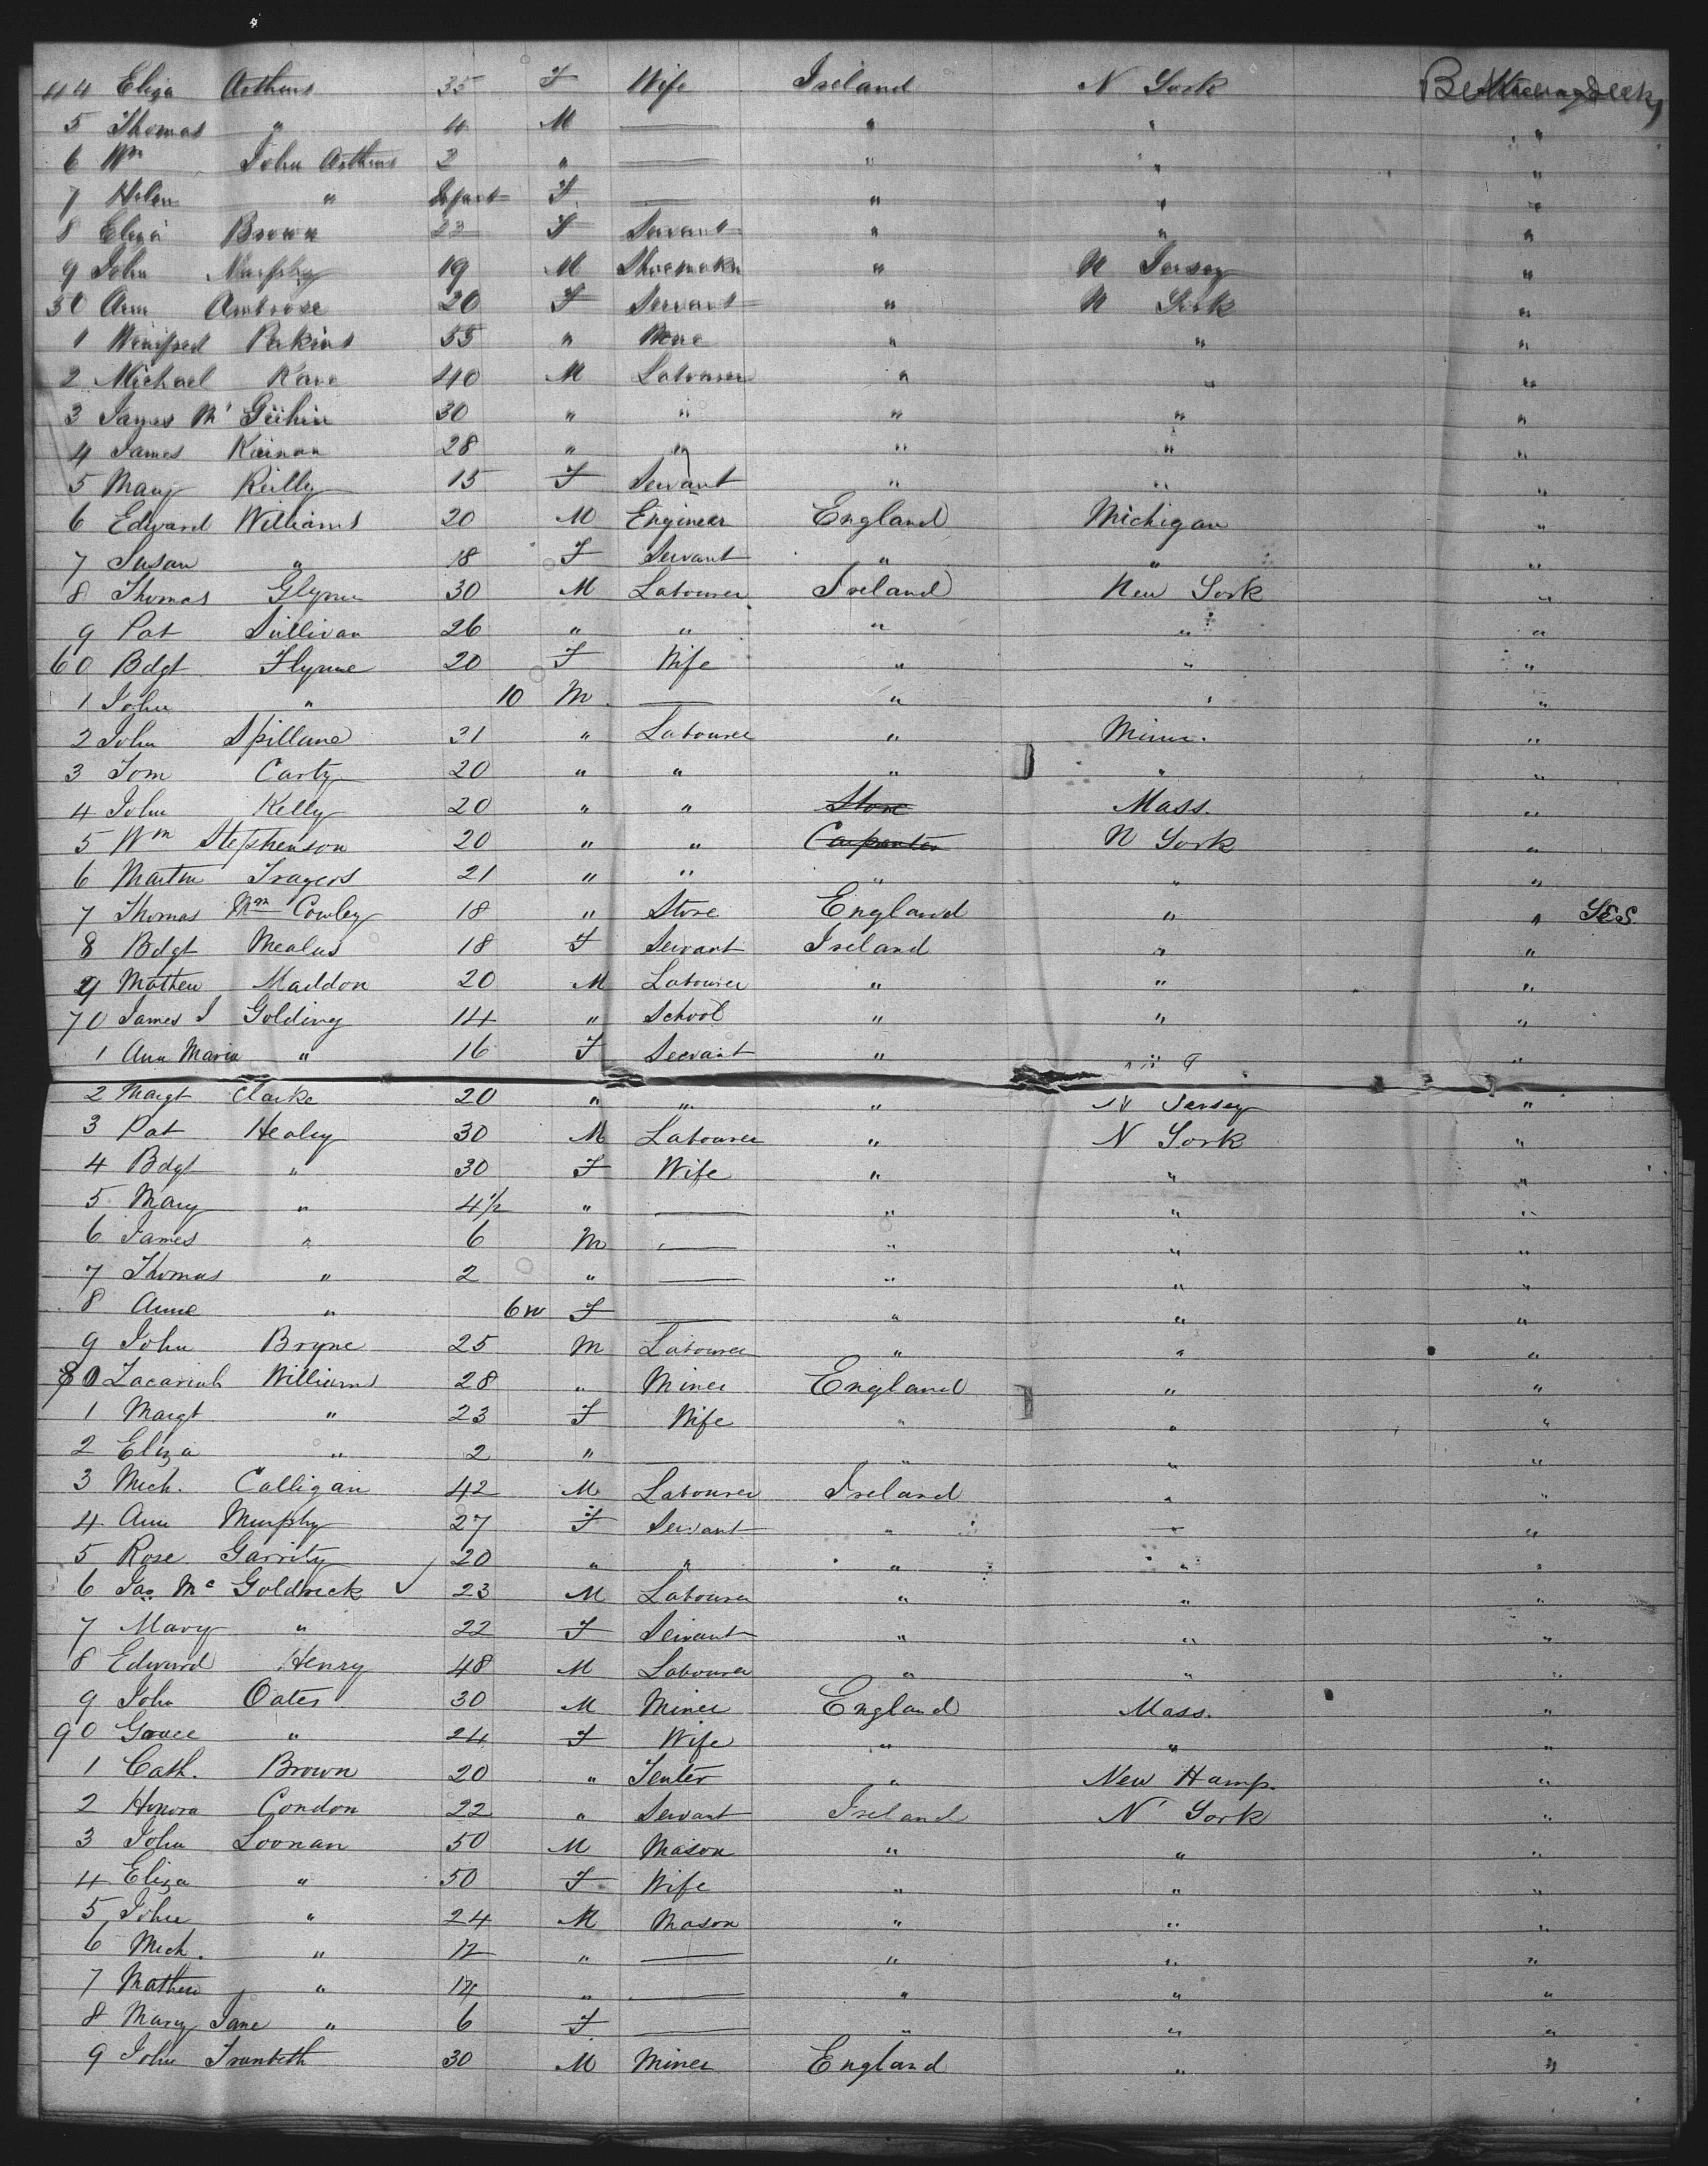 44 Eliza Arthurs 35 F Wife Ireland N York Between Decks
5 Thomas " 4 M — " " "
6 Wm John Arthurs 2 " — " " "
7 Helen " Infant F — " " "
8 Eliza Brown 22 F Servant " " "
9 John Murphy 19 M Shoemaker " N Jersey "
50 Ann Ambrose 20 F Servant " N York "
1 Winifred Perkins 55 " None " " "
2 Michael Kane 40 M Labourer " " "
3 James Mc 30 " " " " "
4 James Kiernan 28 " " " " "
5 Mary Reilly 15 F Servant " " "
6 Edward Williams 20 M Engineer England Michigan "
7 Susan " 18 F Servant " " "
8 Thomas Glynn 30 M Labourer Ireland New York "
9 Pat Sullivan 26 " " " " "
60 Bdgt Flynne 20 F Wife " " "
1 John " 10 M — " " "
2 John Spillane 21 " Labourer " Minn. "
3 Tom Carty 20 " " " " "
4 John Kelly 20 " " Store Mass. "
5 Wm Stephenson 20 " " Carpenter N York "
6 Martin Travers 21 " " " " "
7 Thomas Wm Cowley 18 " Store England " " YES
8 Bdgt Mealus 18 F Servant Ireland " "
9 Mathew Maddon 20 M Labourer " " "
70 James J Golding 14 " School " " "
1 Ann Maria " 16 F Servant " " "
2 Margt Clarke 20 " " " N Jersey "
3 Pat Healey 30 M Labourer " N York "
4 Bdgt " 30 F Wife " " "
5 Mary " 4½ " — " " "
6 James " 6 M — " " "
7 Thomas " 2 " — " " "
8 Anne " 6w F — " " "
9 John Bryne 25 M Labourer " " "
80 Zacariah Williams 28 " Miner England " "
1 Margt " 23 F Wife " " "
2 Eliza " 2 " — " " "
3 Mich. Calligan 42 M Labourer Ireland " "
4 Ann Murphy 27 F Servant " " "
5 Rose Garrity 20 " " " " "
6 Jas Mc Goldrick ✓ 23 M Labourer " " "
7 Mary " 22 F Servant " " "
8 Edward Henry 48 M Labourer " " "
9 John Oates 30 M Miner England Mass. "
90 Grace " 24 F Wife " " "
1 Cath. Brown 20 " Tenter " New Hamp. "
2 Honora Condon 22 " Servant Ireland N York "
3 John Loonan 50 M Mason " " "
4 Eliza " 50 F Wife " " "
5 John " 24 M Mason " " "
6 Mich. " 12 " — " " "
7 Mathew " 14 " — " " "
8 Mary Jane " 6 F — " " "
9 John 30 M Miner England " "